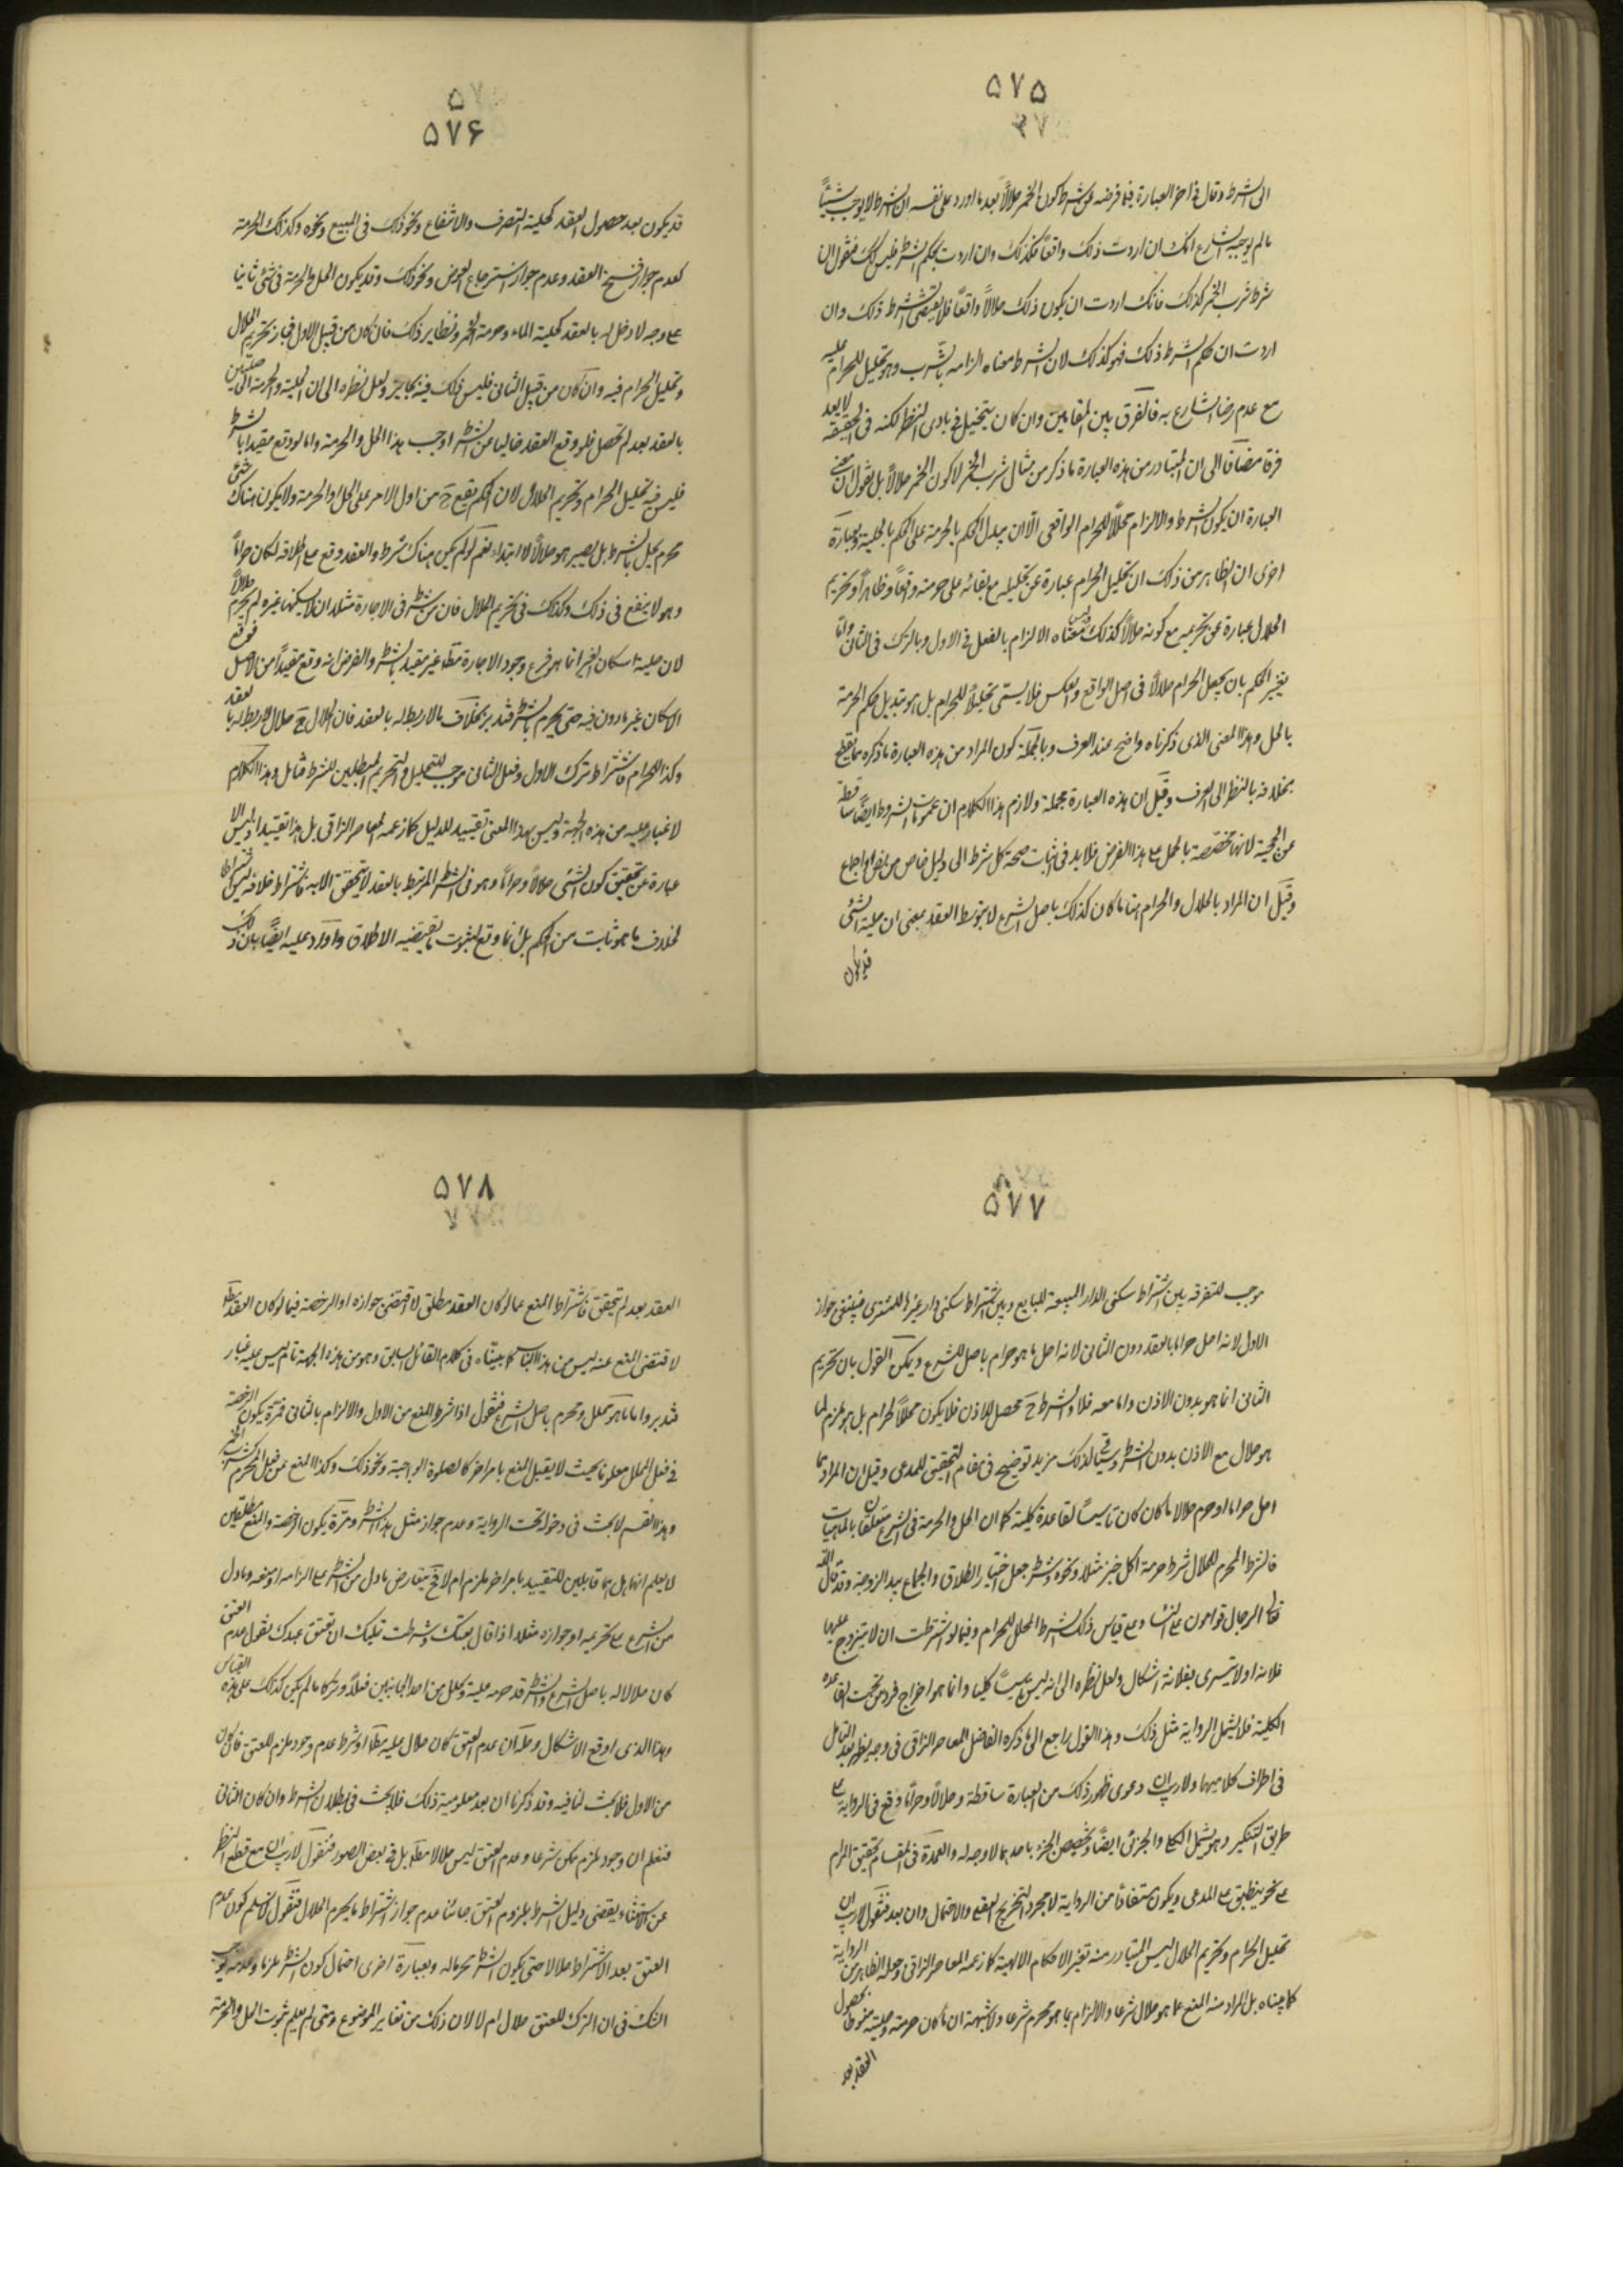 ۵۷۵
الى الشرط وقال في اخر العبارة فيما فرضه من شرط كون الخمر حلالاً بعد ما اورد على نفسه ان الشرط لا يوجب شيئاً
ما لم يوجبه الشارع انك ان اردت ذلك واقعاً فكذلك وان اردت بحكم الشرط فليس كك فنقول ان
شرط شرب الخمر كذلك فانك اردت ان يكون ذلك حلالاً واقعاً فلا يقتضى الشرط ذلك وان
اردت ان حكم الشرط ذلك فهو كذلك لان الشرط معناه الزامه بالشرب وهو تحليل للحرام عليه
مع عدم رضا الشارع به فالفرق بين المقامين وان كان يتخيل في بادى النظر لكنه فى الحقيقة لا يعد
فرقا مضافا الى ان المتبادر من هذه العبارة ما ذكر من مثال شرب الخمر لا كون الخمر حلالاً بل نقول ان معنى
العبارة ان يكون الشرط والالزام محللاً للحرام الواقعى الا ان يبدل الحكم بالحرمة على الحكم بالحلية وبعبارة
اخرى ان الظاهر من ذلك ان تحليل الحرام عبارة عن تحليله مع بقائه على حرمته واقعاً وظاهراً وتحريم
الحلال عبارة عن تحريمه مع كونه حلالاً كذلك وليس معناه الا الالزام بالفعل في الاول وبالترك فى الثانى واما
تغيير الحكم بان يجعل الحرام حلالاً فى اصل الواقع وبالعكس فلا يسمّى تحليلاً للحرام بل هو تبديل حكم الحرمة
بالحل وهذا المعنى الذى ذكرناه واضح عند العرف وبالجملة كون المراد من هذه العبارة ما ذكره مما يقطع
بخلافه بالنظر الى العرف وقيل ان هذه العبارة مجملة ولازم هذا الكلام ان عمومات الشروط ايضاً ساقطة
عن الحجية لانها مخصصة بالمجمل على هذا الفرض فلا بد فى اثبات صحة كل شرط الى دليل خاص من نص او اجماع
وقيل ان المراد بالحلال والحرام هنا ما كان كذلك باصل الشرع لا بتوسط العقد بمعنى ان حلية الشئ
قد يكون
۵۷۶
قد يكون بعد حصول العقد كحلية التصرف والانتفاع ونحو ذلك فى المبيع ونحوه وكذلك الحرمة
كعدم جواز فسخ العقد وعدم جواز استرجاع العوض ونحو ذلك وقد يكون الحل والحرمة فى شئ ثابتا
على وجه لا دخل له بالعقد كحلية الماء وحرمة الخمر ونظاير ذلك فان كان من قبيل الاول فجاز تحريم الحلال
وتحليل الحرام فيه وان كان من قبيل الثانى فليس ذلك فيه بجايز ولعل نظره الى ان الحلية والحرمة الحاصلتين
بالعقد بعد لم تحصل فلو وقع العقد خاليا عن الشرط اوجب هذا الحل والحرمة واما لو وقع مقيدا بالشرط
فليس فيه تحليل الحرام وتحريم الحلال لان الحكم يقع ح من اول الامر على الحل او الحرمة ولا يكون هناك شئ
محرم يحل بالشرط بل يصير هو حلالاً لا ابتداء نعم لو لم يكن هناك شرط والعقد وقع على اطلاقه لكان حراماً
وهو لا ينفع فى ذلك وكذلك فى تحريم الحلال فان من شرط فى الاجارة مثلا ان لا يسكنها غيره لم يحرم حلالاً
لان حلية اسكان الغير انما هو فرع وجود الاجارة مطلقا غير مقيد بالشرط والفرض انه وقع مقيداً من الاصل فوقع
الاسكان غير ماذون فيه حتى يحرم بالشرط فتدبر بخلاف ما لا ربط له بالعقد فان الحلال ح حلال لا ربط له بالعقد
وكذا الحرام فاشتراط ترك الاول وفعل الثانى موجب للتحليل والتحريم المبطلين للشرط فتامل وهذا الكلام
لا غبار عليه من هذه الجهة وليس بهذا المعنى تقييد للدليل كما زعمه المعاصر النراقى بل هذا تقييد اذ ليس الا
عبارة عن تحقيق كون الشئ حلالاً وحراماً وهو فى الشرط المرتبط بالعقد لا يتحقق الا به فاشتراط خلافه ليس اشتراطا
لخلاف ما هو ثابت من الحكم بل انما وقع الثبوت بالقضيه الاطلاق واورد عليه ايضاً بان ذلك
۵۷۷
موجب للتفرقه بين اشتراط سكنى الدار المبيعة للبايع وبين اشتراط سكنى دار غيرها للمشترى فينبغى جواز
الاول لانه احل حراما بالعقد دون الثانى لانه احل ما هو حرام باصل الشرع ويمكن القول بان تحريم
الثانى انما هو بدون الاذن واما معه فلا والشرط ح محصل للاذن فلا يكون محللاً لحرام بل هو ملزم لما
هو حلال مع الاذن بدون الشرط وسياتى لذلك مزيد توضيح فى مقام التحقيق للمدعى وقيل ان المراد بما
احل حراما او حرم حلالا ما كان كان تاسيساً لقاعدة كلية كما ان الحل والحرمة فى الشرع متعلقان بالماهيات
فالشرط المحرم للحلال شرط حرمة اكل خبز مثلا ونحوه وشرط جعل اختيار الطلاق والجماع بيد الزوجة وقد قال الله
تعالى الرجال قوامون على النساء وعلى قياس ذلك الشرط المحلل للحرام وفيما لو اشترطت ان لا يتزوج عليها
فلانة او لا يتسرى بفلانة اشكال ولعل نظره الى انه ليس تاسيساً كليا وانما هو اخراج فرد من تحت القاعدة
الكلية فلا يشمل الرواية مثل ذلك وهذا القول راجع الى ما ذكره الفاضل المعاصر النراقى فى وجه يظهر بعد التامل
فى اطراف كلاميهما ولا ريب ان دعوى ظهور ذلك من العبارة ساقطة وحلالاً وحراماً وقع فى الرواية على
طريق التنكير وهو يشمل الكلى والجزئى ايضاً وتخصيص الجزء باحدهما لا وجه له والعمدة فى المقام تحقيق المرام
على نحو ينطبق على المدعى ويكون مستفاداً من الرواية لا مجرد التخريج العقلى والاحتمال وان بعد فنقول لا ريب ان
تحليل الحرام وتحريم الحلال ليس المتبادر منه تغير الاحكام الالهية كما زعمه المعاصر النراقى وجعله الظاهر من الرواية
كما بيناه بل المراد منه المنع عما هو حلال شرعا والالزام بما هو محرم شرعا ولا شبهة ان ما كان حرمته وحليته منوطا بحصول
العقد بعد
۵۷۸
العقد بعد لم يتحقق فاشتراط المنع عما لو كان العقد مطلق لاقتضى جوازه او الرخصة فيما لو كان العقد مطلقا
لاقتضى المنع عنه ليس من هذا الباب كما بيناه فى كلام القائل السابق وهو من هذه الجهة تام ليس عليه غبار
فتدبر واما ما هو محلل ومحرم باصل الشرع فنقول اذا شرط المنع من الاول والالزام بالثانى فمرة يكون الرخصة
فى فعل المحلل معلوما بحيث لا يقبل المنع بامر اخر كالصلوة الواجبة ونحو ذلك وكذا المنع عن فعل المحرم كشرب الخمر
وهذا القسم لا بحث فى دخوله تحت الرواية وعدم جواز مثل هذا الشرط ومرة يكون الرخصة والمنع مطلقين
لا يعلم انهما هل هما قابلين للتقييد بامر اخر ملزم ام لا فح يتعارض ما دل من الشرط على الزامه او منعه وما دل
من الشرع على تحريمه او جوازه مثلا اذا قال بعتك وشرطت عليك ان تعتق عبدك نقول عدم العتق
كان حلالا له باصل الشرع والشرط قد حرمه عليه وكل من احد الجانبين فعلاً وتركا ما لم يكن كذلك على هذه القياس
وهذا الذى اوقع الاشكال وحله ان عدم العتق كان حلال عليه مطلقا او شرط عدم وجود ملزم للعتق فان كان
من الاول فلا بحث لنا فيه وقد ذكرنا ان بعد معلومية ذلك فلا بحث فى بطلان الشرط وان كان الثانى
فنعلم ان وجود ملزم ممكن شرعا وعدم العتق ليس حلالا مطلقا بل فى بعض الصور فنقول لا ريب ان مع قطع النظر
عن الاستثناء يقتضى دليل الشرط بلزوم العتق جائنا عدم جواز اشتراط ما يحرم الحلال فنقول لا نسلم كون عدم
العتق بعد الاشتراط حلالا حتى يكون الشرط محرما له وبعبارة اخرى احتمال كون الشرط ملزما وعدمه يوجب
الشك فى ان الترك للعتق حلال ام لا لان ذلك من تغاير الموضوع ومتى لم يعلم ثبوت الحل والحرمة